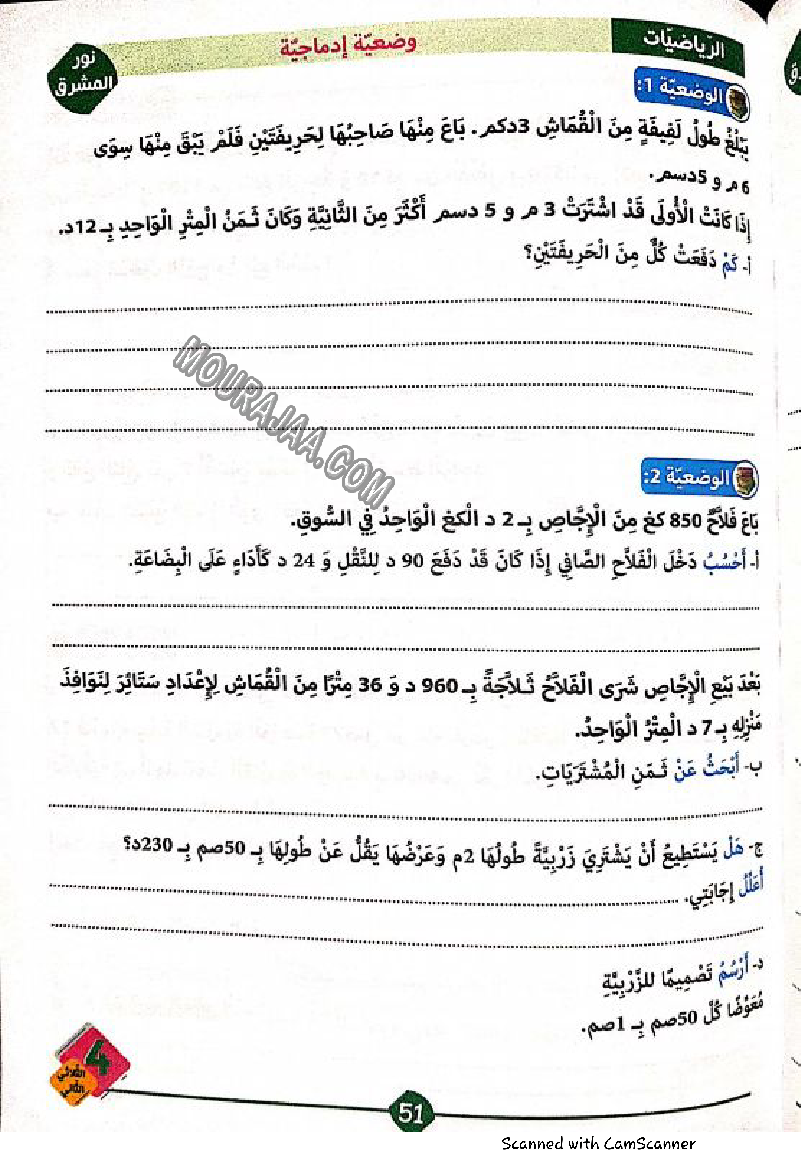 الرّياضيّات
وضعيّة إدماجيّة
نور
المشرق
الوضعيّة 1:
يَبْلُغُ طُولُ لَفِيفَةٍ مِنَ الْقُمَاشِ 3دكم. بَاعَ مِنْهَا صَاحِبُهَا لِحَرِيفَتَيْنِ فَلَمْ يَبْقَ مِنْهَا سِوَى
6 م و 5دسم.
إِذَا كَانَتْ الْأُولَى قَدْ اشْتَرَتْ 3 م و 5 دسم أَكْثَرَ مِنَ الثَّانِيَّةِ وَكَانَ ثَمَنُ الْمِتْرِ الْوَاحِدِ بِـ 12د.
أ- كَمْ دَفَعَتْ كُلٌّ مِنَ الْحَرِيفَتَيْنِ؟
MOURAJAA.COM
الوضعيّة 2:
بَاعَ فَلاَّحٌ 850 كغ مِنَ الْإِجَّاصِ بِـ 2 د الكغ الْوَاحِدُ فِي السُّوقِ.
أ- أَحْسُبُ دَخْلَ الْفَلاَّحِ الصَّافِي إِذَا كَانَ قَدْ دَفَعَ 90 د لِلنَّقْلِ وَ 24 د كَأَدَاءٍ عَلَى الْبِضَاعَةِ.
بَعْدَ بَيْعِ الْإِجَّاصِ شَرَى الْفَلاَّحُ ثَلاَّجَةً بِـ 960 د وَ 36 مِتْرًا مِنَ الْقُمَاشِ لِإِعْدَادِ سَتَائِرَ لِنَوَافِذَ
مَنْزِلِهِ بِـ 7 د الْمِتْرُ الْوَاحِدُ.
ب- أَبْحَثُ عَنْ ثَمَنِ الْمُشْتَرَيَاتِ.
ج- هَلْ يَسْتَطِيعُ أَنْ يَشْتَرِيَ زَرْبِيَّةً طُولُهَا 2م وَعَرْضُهَا يَقُلُّ عَنْ طُولِهَا بِـ 50صم بِـ 230د؟
أُعَلِّلُ إِجَابَتِي.
د- أَرْسُمُ تَصْمِيمًا للزَّرْبِيَّةِ
مُعَوِّضًا كُلَّ 50صم بِـ 1صم.
4
الثلاثي
الثاني
51
Scanned with CamScanner